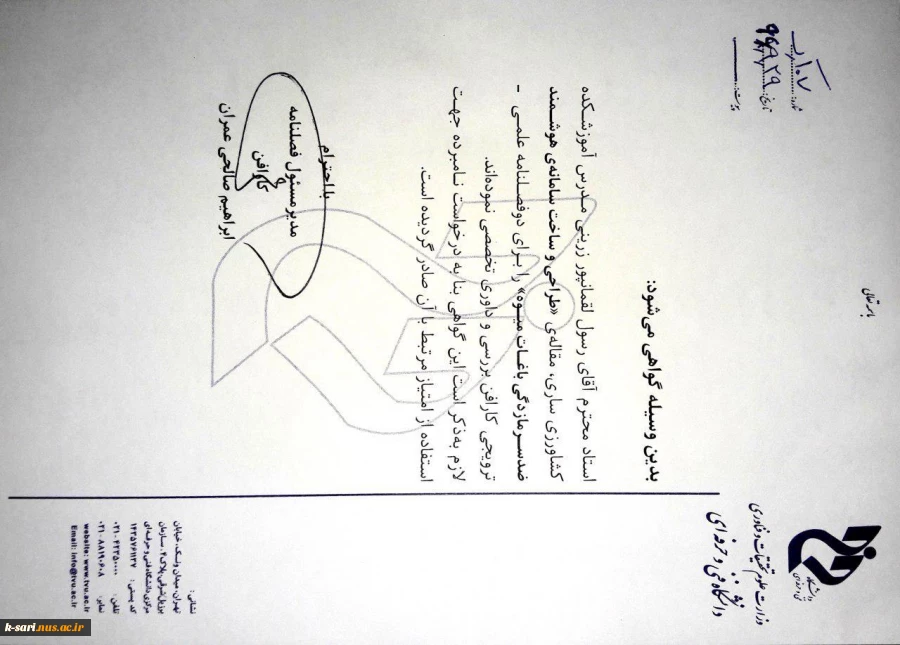 باسمه تعالی
شماره: ۱۰۷/پ
تاریخ: ۹۶/۸/۲۹
پیوست:
وزارت علوم تحقیقات و فناوری
دانشگاه فنی و حرفه‌ای
دانشگاه
فنی و حرفه‌ای
بدین وسیله گواهی می‌شود:
استاد محترم آقای رسول لقمانپور زرینی مدرس آموزشکده
کشاورزی ساری، مقاله‌ی «طراحی و ساخت سامانه‌ی هوشمند
ضدسرمازدگی باغات میوه» را برای دوفصلنامه علمی -
ترویجی کارافن بررسی و داوری تخصصی نموده‌اند.
لازم به‌ذکر است این گواهی بنا به درخواست نامبرده جهت
استفاده از امتیاز مرتبط با آن صادر گردیده است.
با احترام
مدیرمسئول فصلنامه
کارافن
ابراهیم صالحی عمران
نشانی:
تهران، میدان ونک، خیابان
برزیل شرقی، پلاک ۴، سازمان
مرکزی دانشگاه فنی و حرفه‌ای
کد پستی: ۱۴۳۵۷۶۱۱۳۷
تلفن: ۰۲۱-۴۲۳۵۰۰۰۰
نمابر: ۰۲۱-۸۸۱۹۰۶۰۸
website: www.tvu.ac.ir
Email: info@tvu.ac.ir
k-sari.nus.ac.ir